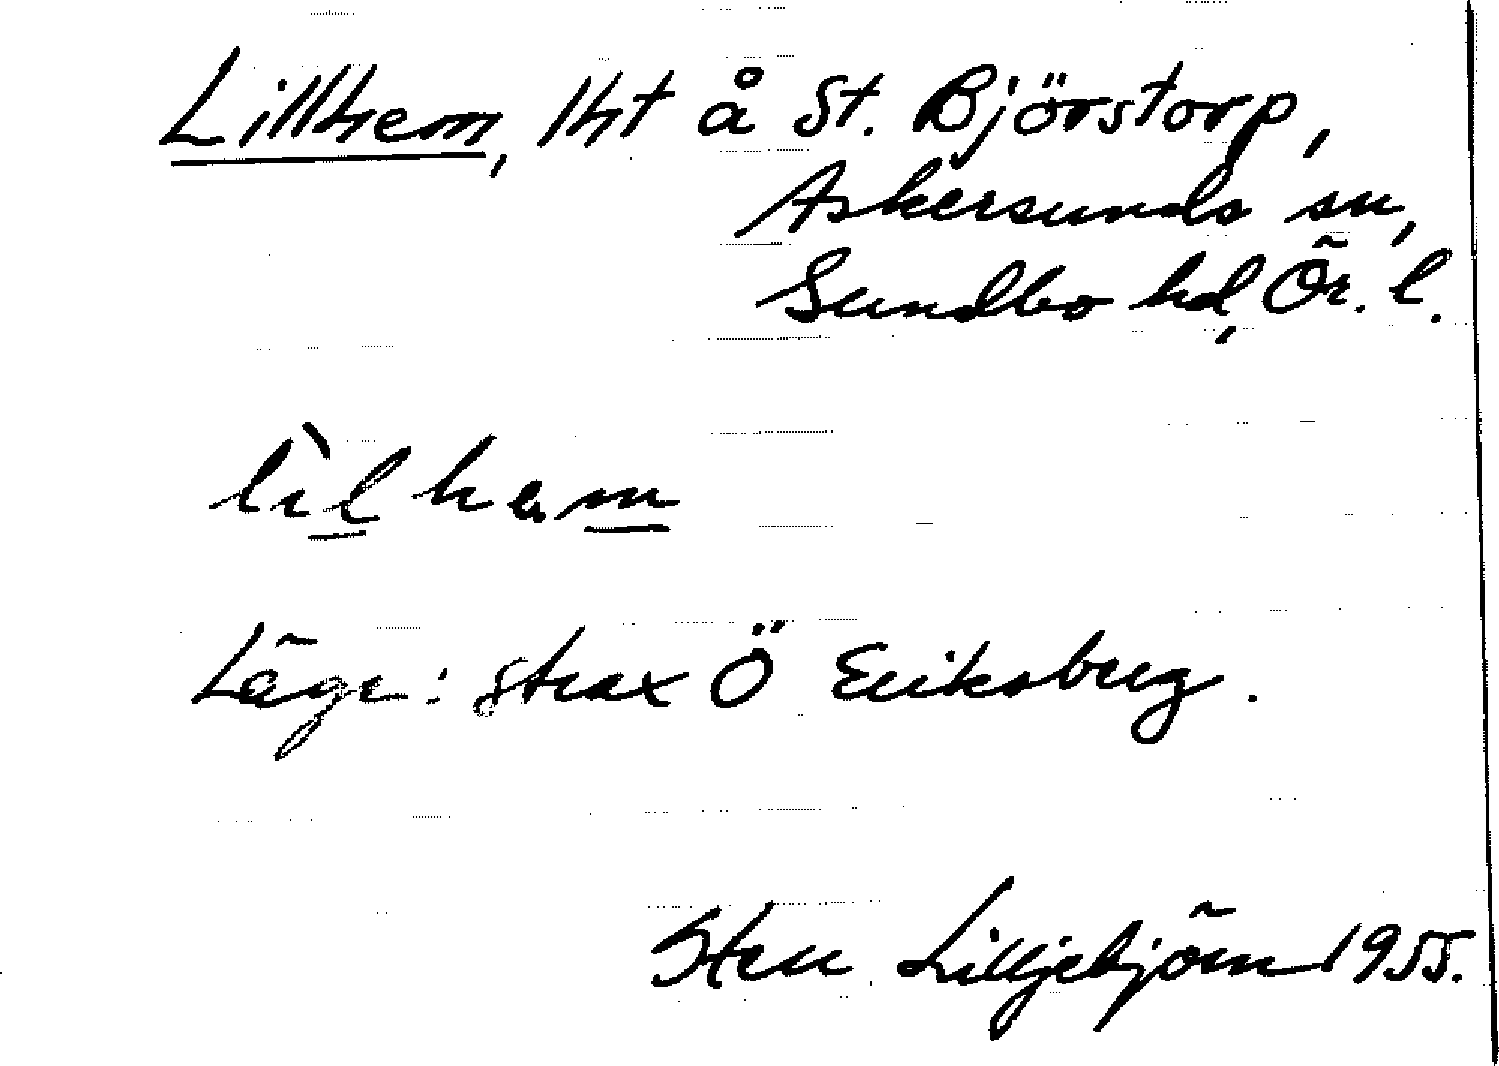 Lillhem, lht å St. Björstorp,
Askersunds sn,
Sundbo hd, Ör. l.
lìl hem
Läge: strax Ö Eriksberg.
Sten Lilljebjörn 1955.